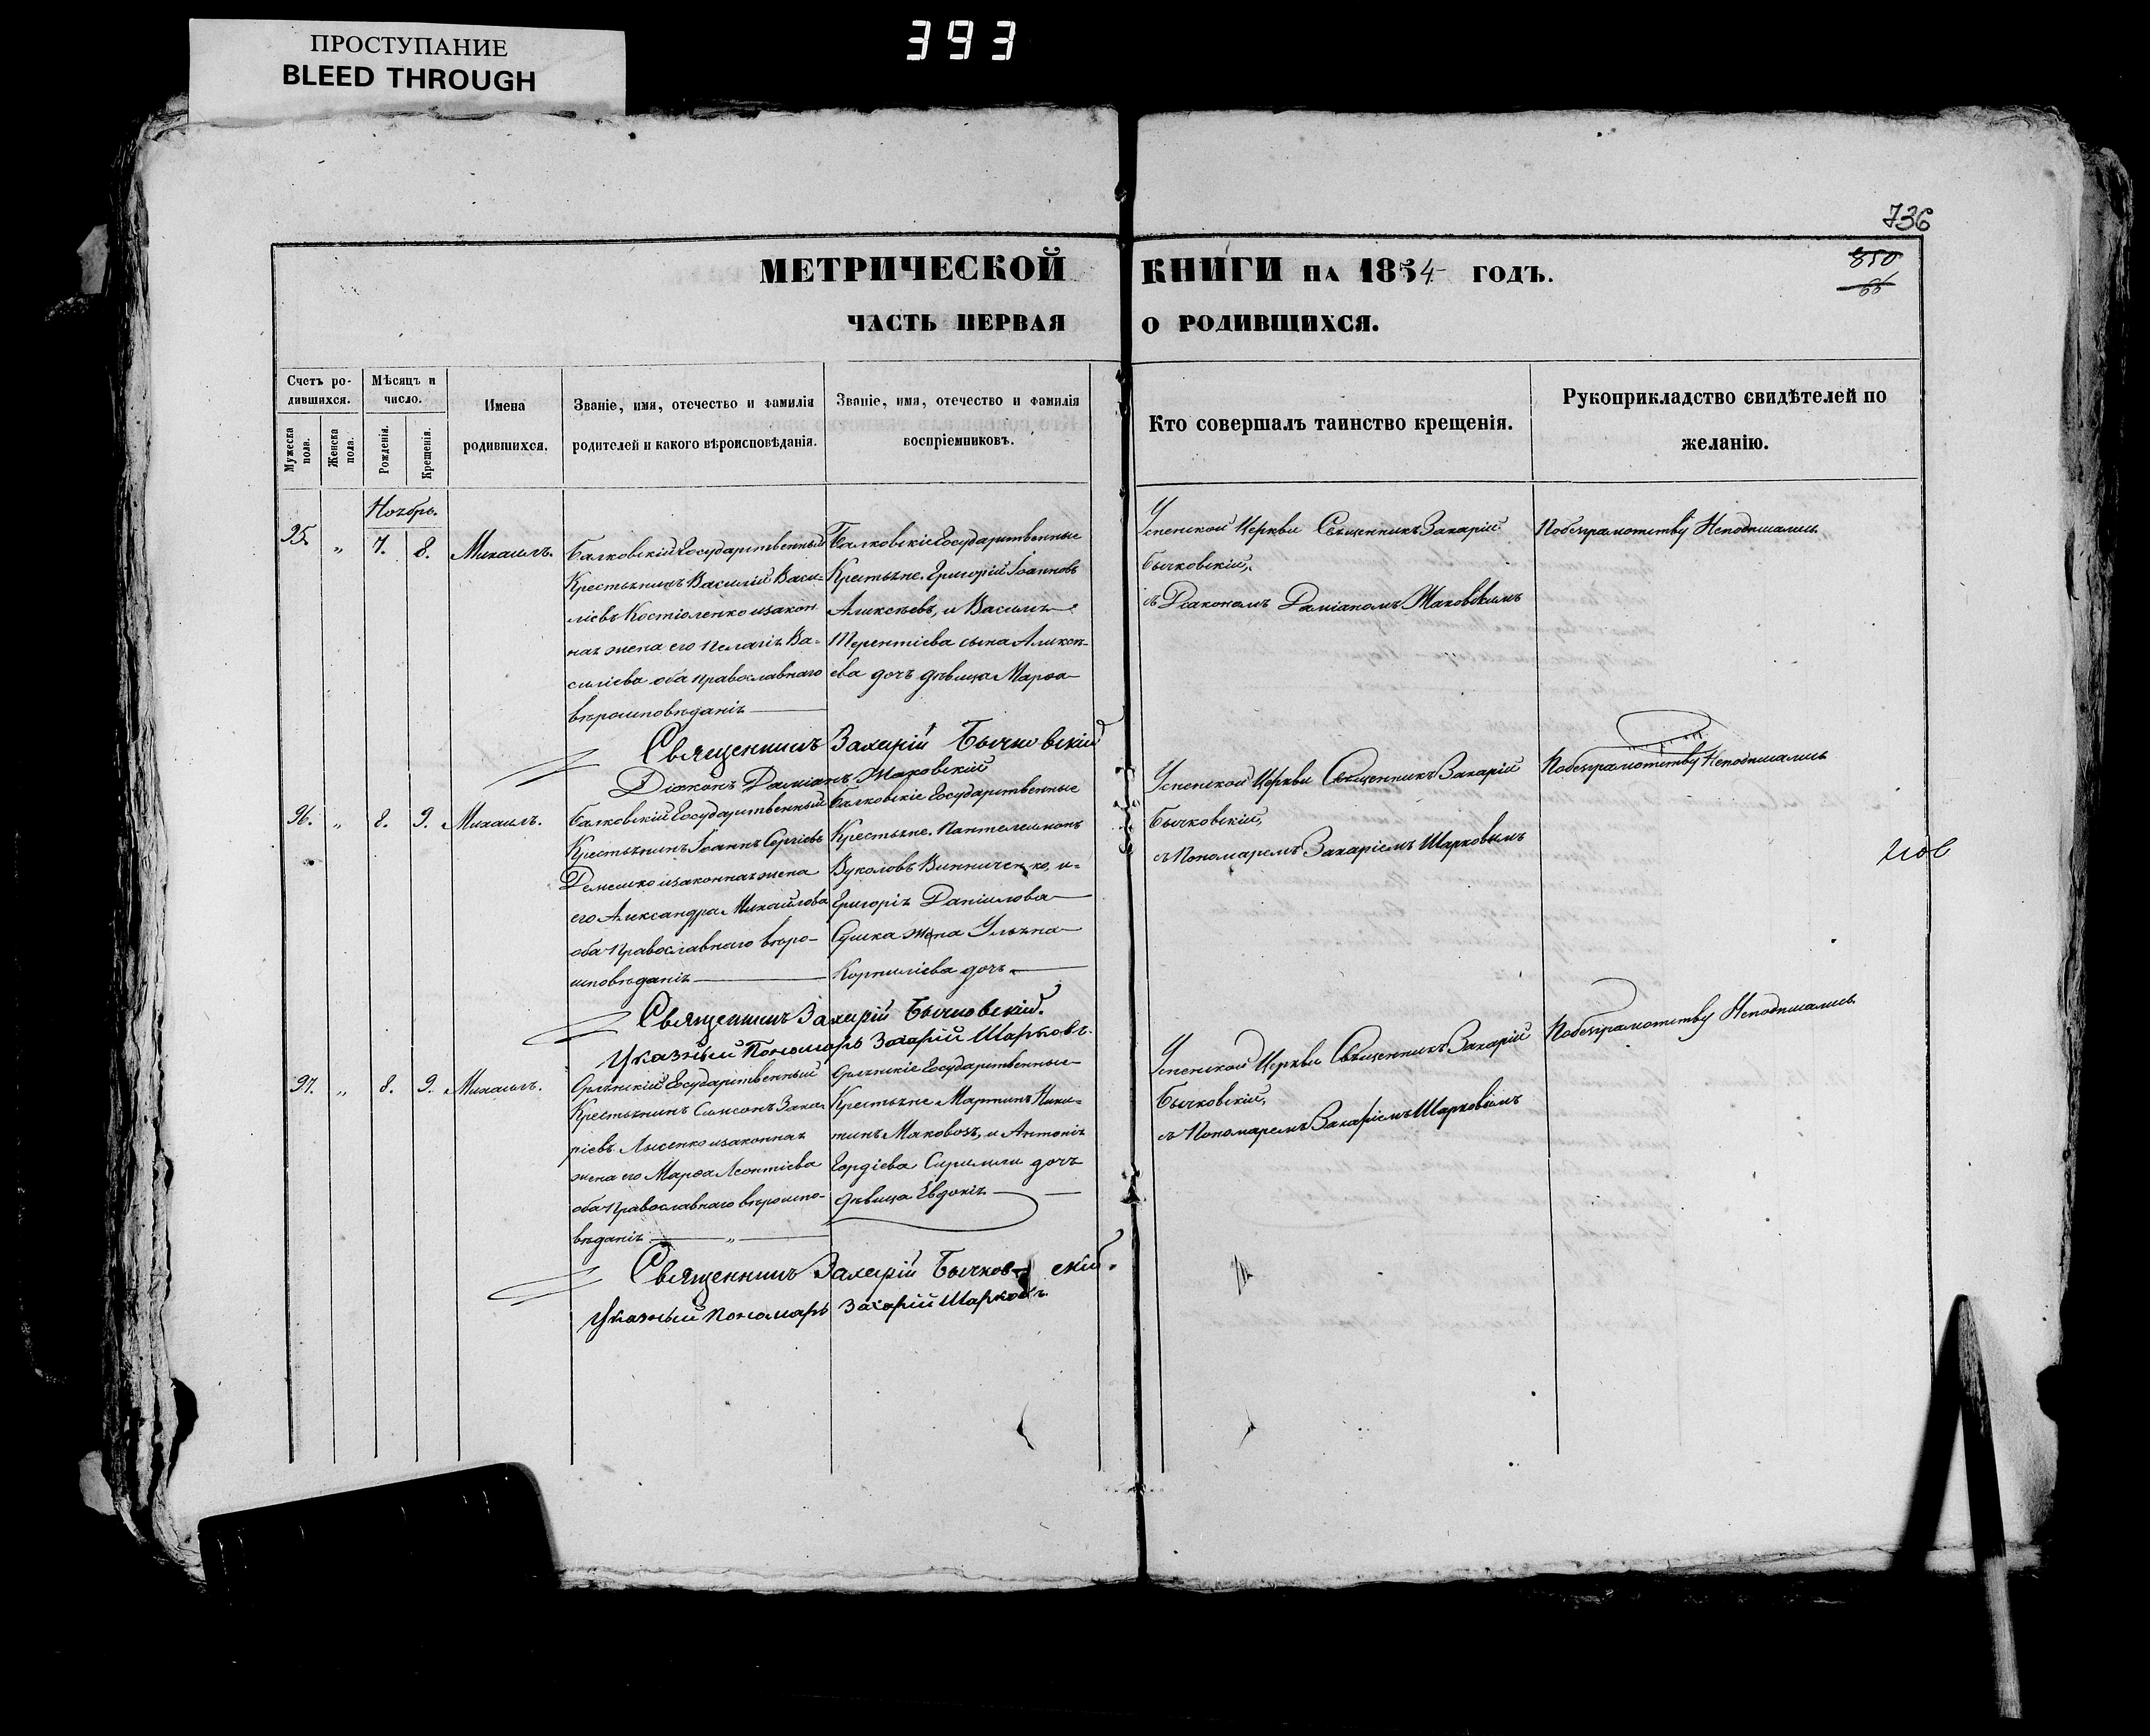 ПРОСТУПАНИЕ
BLEED THROUGH
393
736
МЕТРИЧЕСКОЙ КНИГИ НА 1854 ГОДЪ.
850
66
ЧАСТЬ ПЕРВАЯ О РОДИВШИХСЯ.
Счетъ ро-
дившихся.
Мужеска пола.
Женска пола.
Мѣсяцъ и
число.
Рожденія.
Крещенія.
Имена
родившихся.
Званіе, имя, отечество и фамилія
родителей и какого вѣроисповѣданія.
Званіе, имя, отечество и фамилія
воспріемниковъ.
Кто совершалъ таинство крещенія.
Рукоприкладство свидѣтелей по
желанію.
Ноябрь.
95. „ 7. 8. Михаилъ.
Балковскій Государственный
Крестьянинъ Василій Васи-
ліевъ Костюленко изакон
ная жена его Пелагія Ва-
силіева оба православнаго
вѣроисповѣданія
Балковскіе Государственные
Крестьяне. Григорій Іоанновъ
Алексѣевъ, и Василія
Терентіева сына Алексѣ-
ева дочь дѣвица Марѳа
Успенской Церкви Священникъ Захарій
Бычковскій,
съ Діакономъ Даміаномъ Маковскимъ
Побезграмотству Неподписались
Священникъ Захарій Бычковскій
Діаконъ Даміанъ Маковскій
96. „ 8. 9. Михаилъ.
Балковскій Государственный
Крестьянинъ Іоаннъ Сергіевъ
Демешко изаконная жена
его Александра Михайлова
оба Православнаго вѣро-
исповѣданія
Балковскіе Государственные
Крестьяне. Пантелеимонъ
Вуколовъ Винниченко, и
Григорія Даніилова
Сушка жена Ульяна
Корнилієва дочь
Успенской Церкви Священникъ Захарій
Бычковскій,
съ Пономаремъ Захаріемъ Шарковымъ
Побезграмотству Неподписались
Священникъ Захарій Бычковскій.
Указный Пономарь Захарій Шарковъ.
97. „ 8. 9. Михаилъ.
Государственный
Крестьянинъ Симеонъ Заха-
ріевъ Лысенко изаконная
жена его Марѳа Леонтіева
оба Православнаго вѣроиспо-
вѣданія „
Государственные
Крестьяне Мартинъ Ники-
тинъ Маковозъ, и Антонія
Гордіева дочь
дѣвица Евдокія
Успенской Церкви Священникъ Захарій
Бычковскій,
съ Пономаремъ Захаріемъ Шарковымъ
Побезграмотству Неподписались
Священникъ Захарій Бычковскій.
Указный Пономарь Захарій Шарковъ